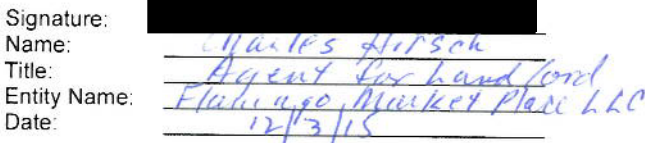 Signature:
Name: Charles Hirsch
Title: Agent for Landlord
Entity Name: Flamingo Market Place LLC
Date: 12/3/15